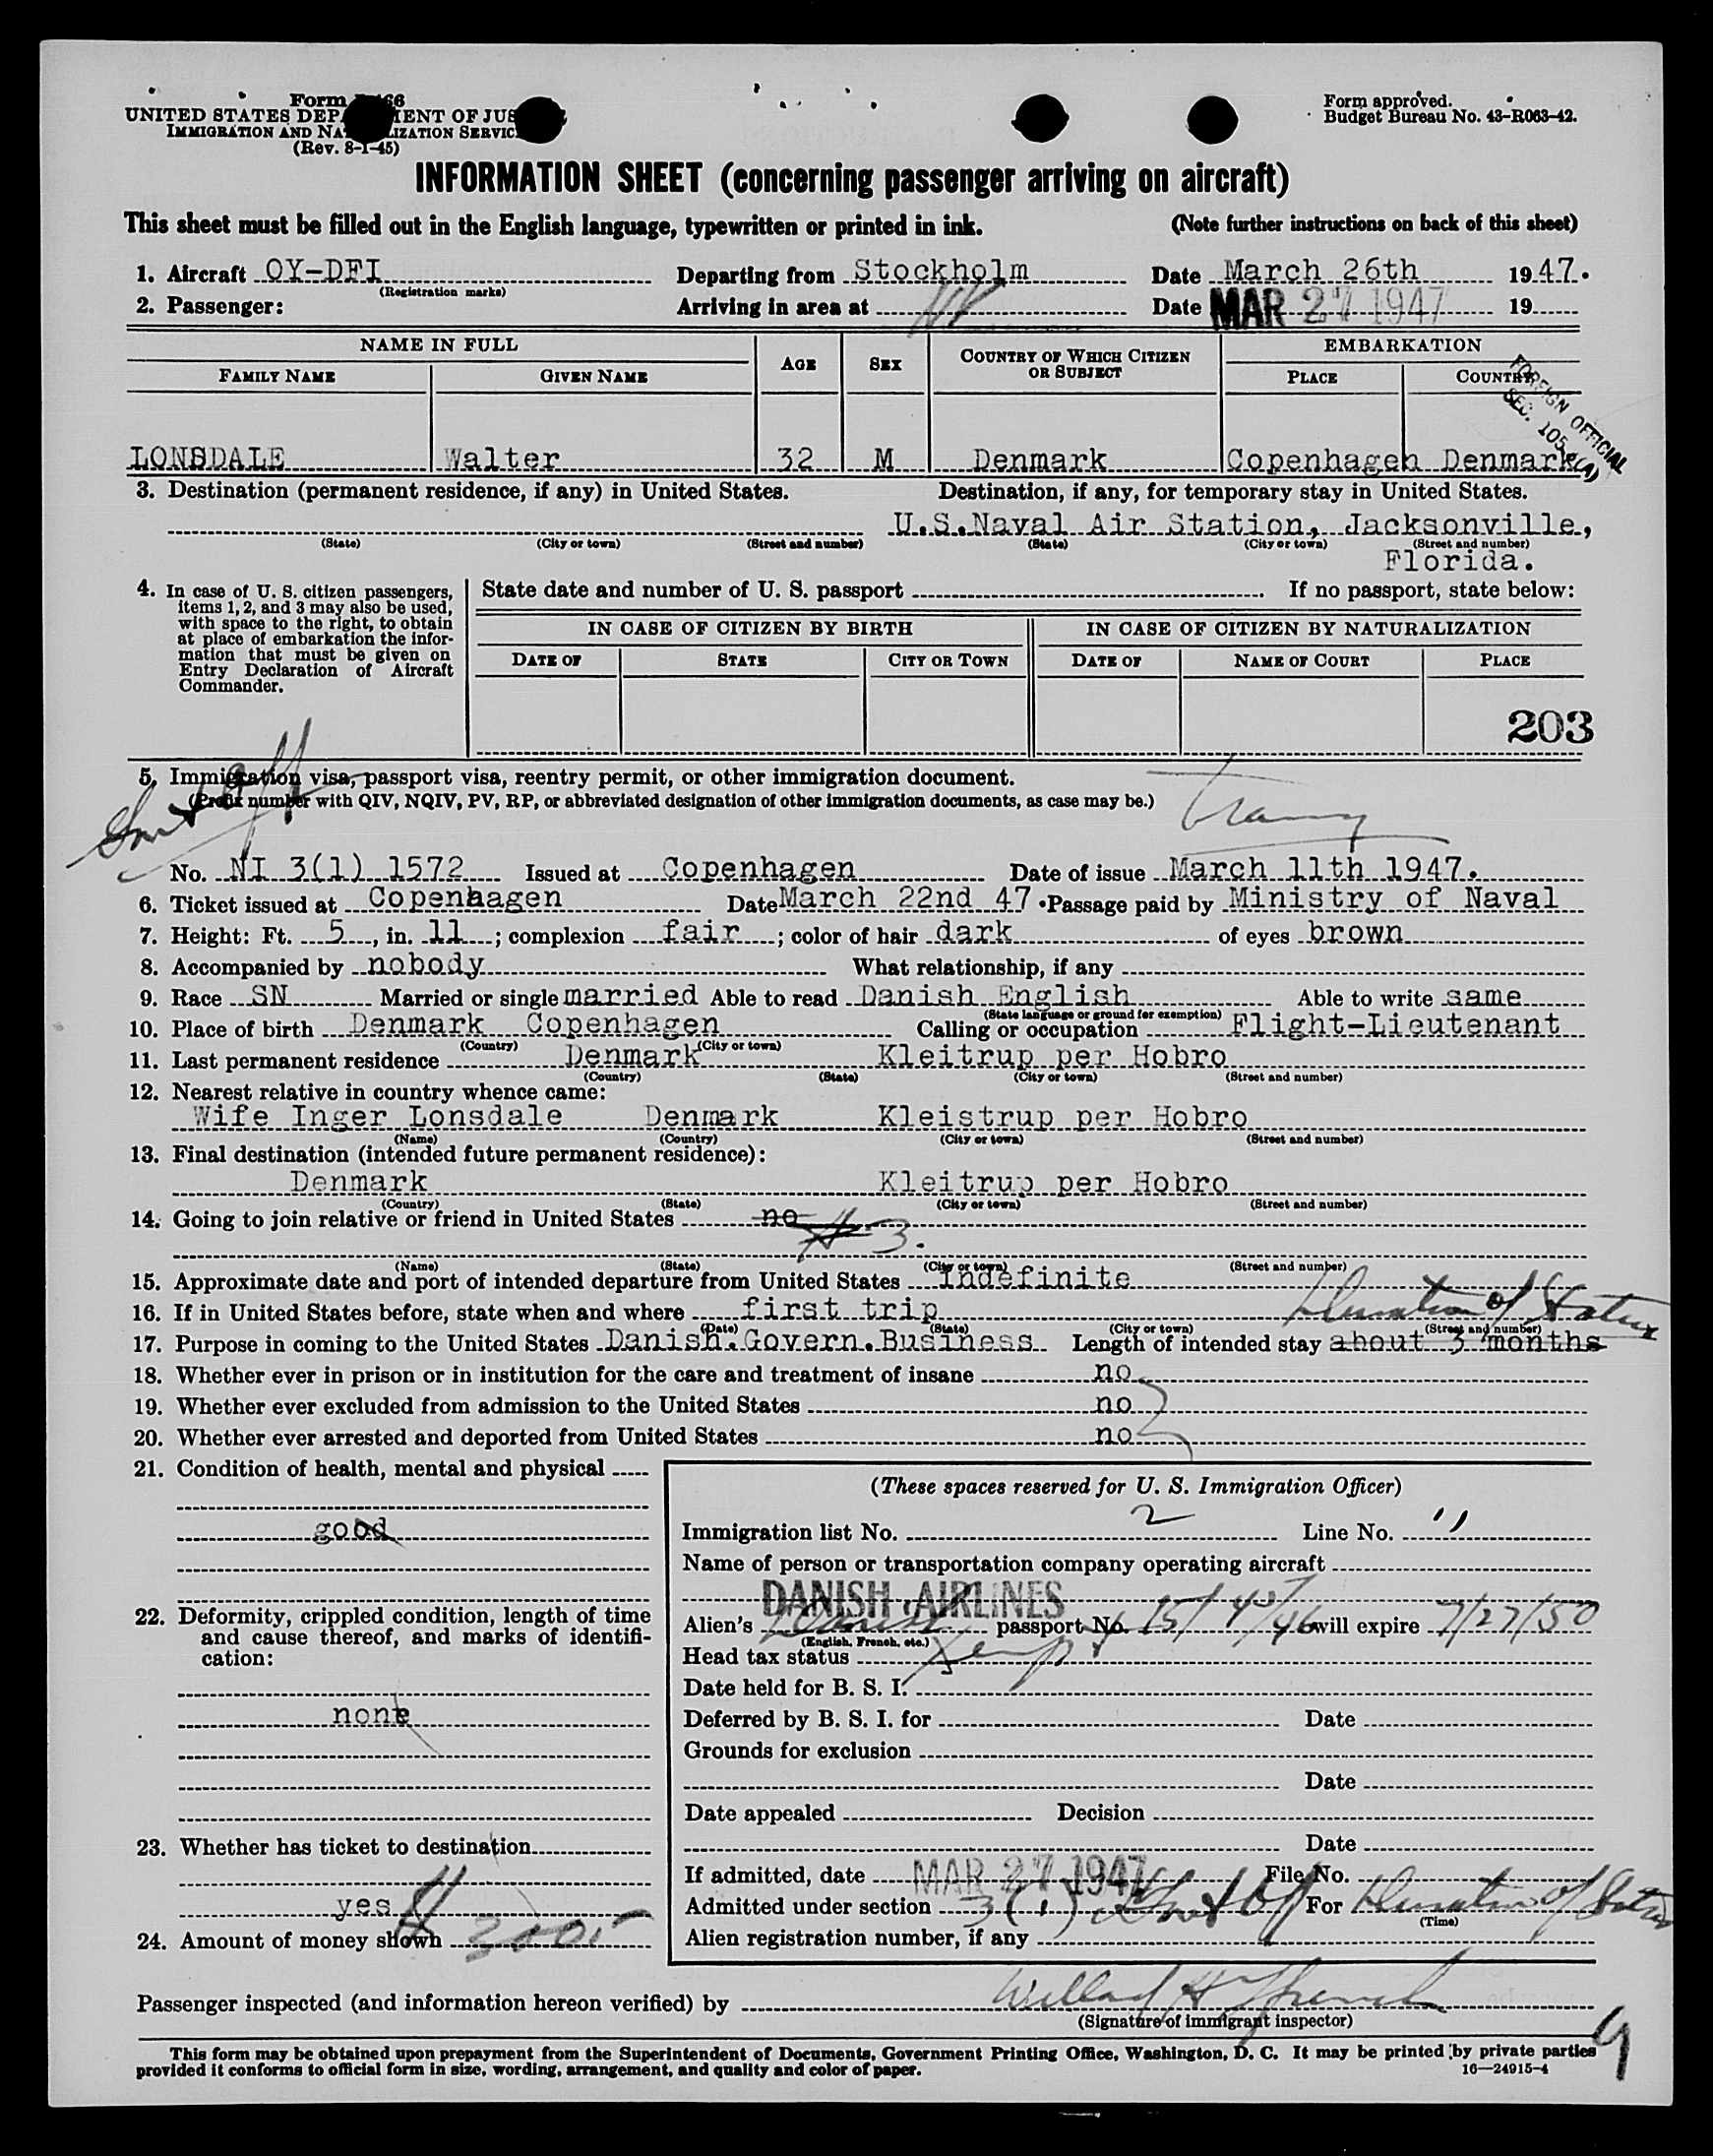 Form 66
UNITED STATES DEP ENT OF JUS
IMMIGRATION AND NA LIZATION SERVIC
(Rev. 8-1-45)
Form approved.
Budget Bureau No. 43-R063-42.
INFORMATION SHEET (concerning passenger arriving on aircraft)
This sheet must be filled out in the English language, typewritten or printed in ink. (Note further instructions on back of this sheet)
1. Aircraft OY-DFI Departing from Stockholm Date March 26th 1947.
(Registration marks)
2. Passenger: Arriving in area at NY Date MAR 27 1947 19
NAME IN FULL AGE SEX COUNTRY OF WHICH CITIZEN OR SUBJECT EMBARKATION
FAMILY NAME GIVEN NAME PLACE COUNTRY
FOREIGN OFFICIAL
SEC. 105 (A)
LONSDALE Walter 32 M Denmark Copenhagen Denmark
3. Destination (permanent residence, if any) in United States. Destination, if any, for temporary stay in United States.
U.S.Naval Air Station, Jacksonville,
(State) (City or town) (Street and number) (State) (City or town) (Street and number)
Florida.
4. In case of U. S. citizen passengers, items 1, 2, and 3 may also be used, with space to the right, to obtain at place of embarkation the information that must be given on Entry Declaration of Aircraft Commander.
State date and number of U. S. passport If no passport, state below:
IN CASE OF CITIZEN BY BIRTH IN CASE OF CITIZEN BY NATURALIZATION
DATE OF STATE CITY OR TOWN DATE OF NAME OF COURT PLACE
203
5. Immigration visa, passport visa, reentry permit, or other immigration document.
(Prefix number with QIV, NQIV, PV, RP, or abbreviated designation of other immigration documents, as case may be.)
No. NI 3(1) 1572 Issued at Copenhagen Date of issue March 11th 1947.
6. Ticket issued at Copenhagen Date March 22nd 47. Passage paid by Ministry of Naval
7. Height: Ft. 5, in. 11; complexion fair; color of hair dark of eyes brown
8. Accompanied by nobody What relationship, if any
9. Race SN Married or single married Able to read Danish English Able to write same
(State language or ground for exemption)
10. Place of birth Denmark Copenhagen Calling or occupation Flight-Lieutenant
(Country) (City or town)
11. Last permanent residence Denmark Kleitrup per Hobro
(Country) (State) (City or town) (Street and number)
12. Nearest relative in country whence came:
Wife Inger Lonsdale Denmark Kleistrup per Hobro
(Name) (Country) (City or town) (Street and number)
13. Final destination (intended future permanent residence):
Denmark Kleitrup per Hobro
(Country) (State) (City or town) (Street and number)
14. Going to join relative or friend in United States no
3.
(Name) (State) (City or town) (Street and number)
15. Approximate date and port of intended departure from United States Indefinite
16. If in United States before, state when and where first trip Duration of Status
(Date) (State) (City or town) (Street and number)
17. Purpose in coming to the United States Danish.Govern.Business Length of intended stay about 3 months
18. Whether ever in prison or in institution for the care and treatment of insane no
19. Whether ever excluded from admission to the United States no
20. Whether ever arrested and deported from United States no
21. Condition of health, mental and physical
good
22. Deformity, crippled condition, length of time and cause thereof, and marks of identification:
none
23. Whether has ticket to destination
yes
24. Amount of money shown
(These spaces reserved for U. S. Immigration Officer)
Immigration list No. 2 Line No. 11
Name of person or transportation company operating aircraft
DANISH AIRLINES
Alien's Danish passport No. 15/ will expire 7/27/50
(English, French, etc.)
Head tax status
Date held for B. S. I.
Deferred by B. S. I. for Date
Grounds for exclusion
Date
Date appealed Decision
Date
If admitted, date MAR 27 1947 File No.
Admitted under section 3(1) For Duration of Status
(Time)
Alien registration number, if any
Passenger inspected (and information hereon verified) by Willard H French
(Signature of immigrant inspector)
9
This form may be obtained upon prepayment from the Superintendent of Documents, Government Printing Office, Washington, D. C. It may be printed by private parties
provided it conforms to official form in size, wording, arrangement, and quality and color of paper. 16—24915-4